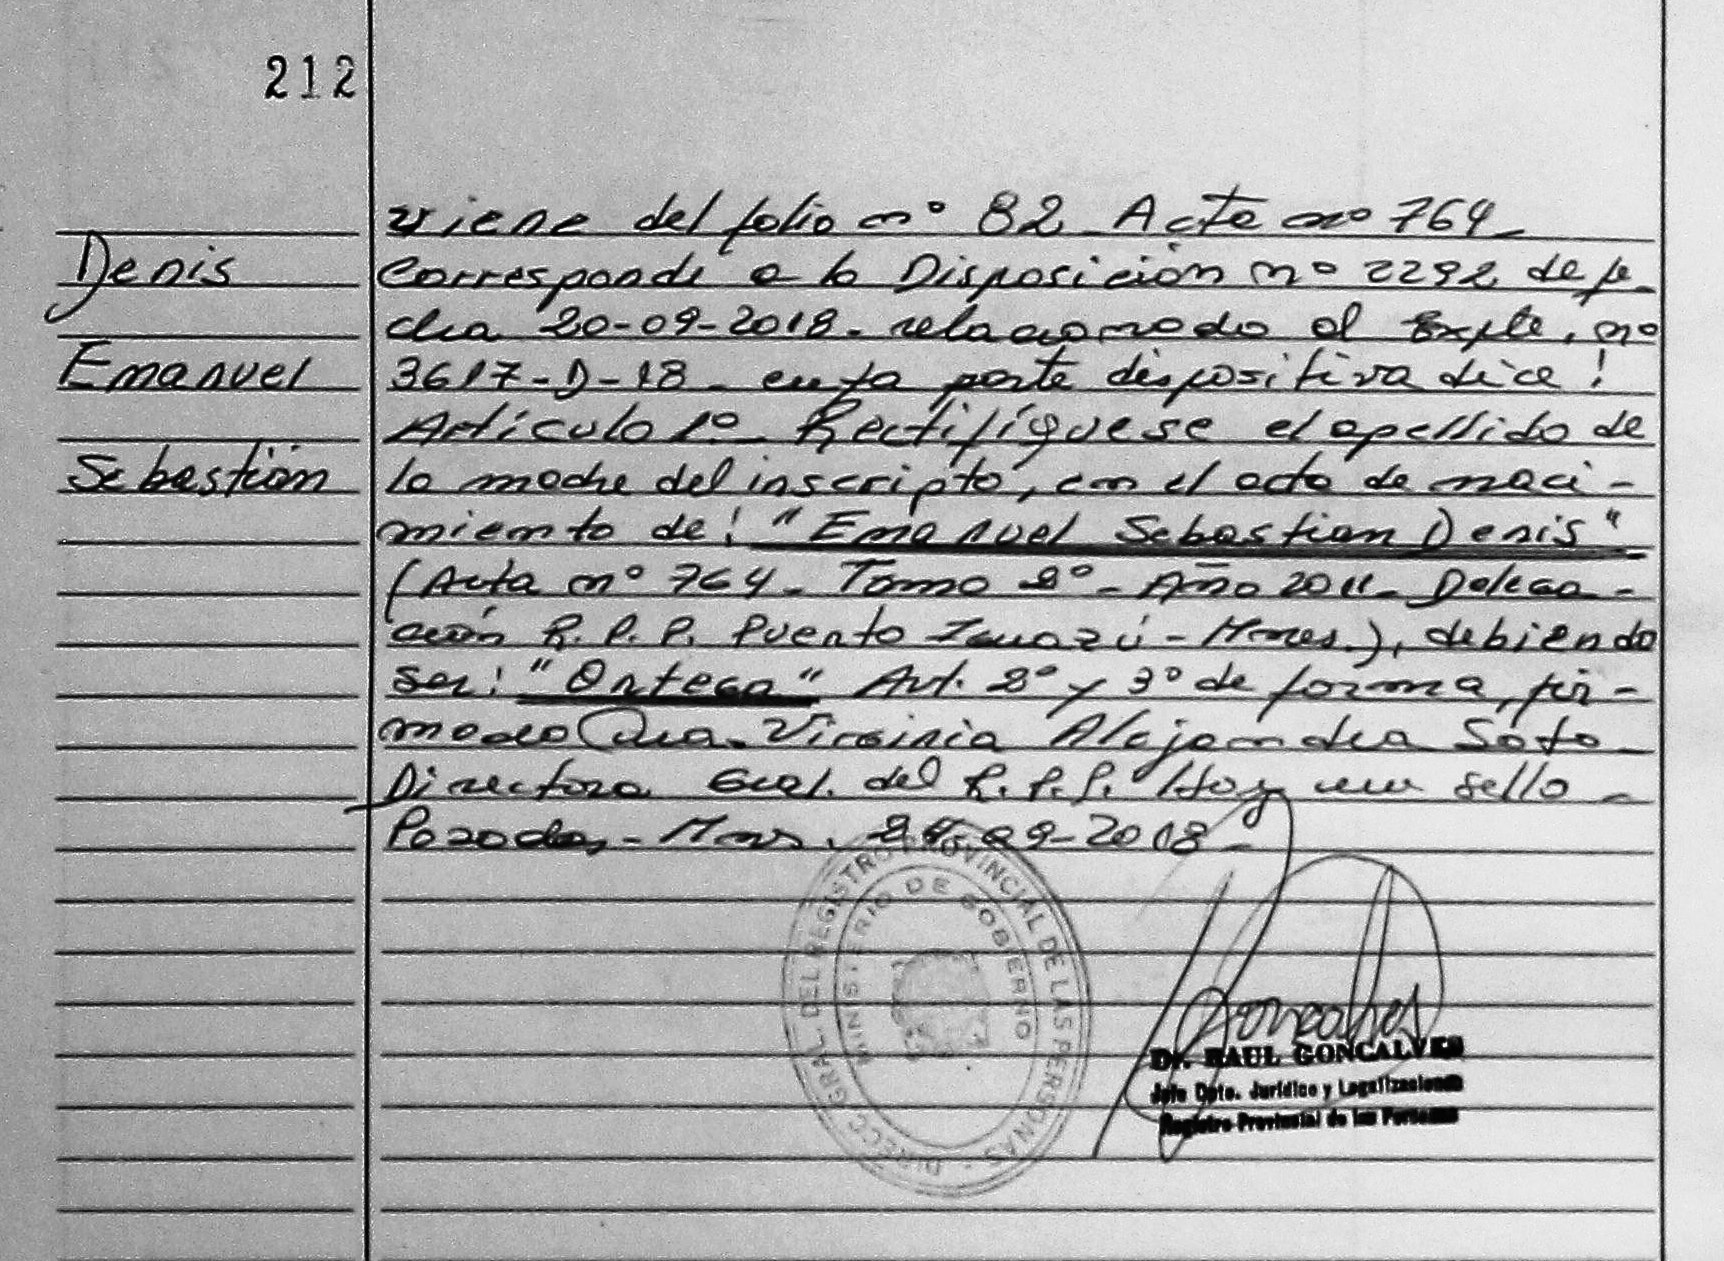 212
viene del folio nº 82 Acta nº 764-
Denis
Corresponde a la Disposición nº 2292 de fe-
cha 20-09-2018- relacionado al Expte. nº
Emanuel
3617-D-18- cuya parte dispositiva dice:
Artículo 1º Rectifíquese el apellido de
Sebastián
la madre del inscripto, en el acta de naci-
miento de: "Emanuel Sebastian Denis"
(Acta nº 764- Tomo 2º- Año 2011- Delega-
ción R.P.P. Puerto Iguazú- Mnes.), debiendo
ser: "Ortega" Art. 2º y 3º de forma, fir-
mado Dra. Virginia Alejandra Soto
Directora Gral. del R.P.P. Hay un sello-
Posadas- Mnes. 24-09-2018-
DIRECC. GRAL. DEL REGISTRO PROVINCIAL DE LAS PERSONAS -
MINISTERIO DE GOBIERNO
Goncalves
Dr. RAUL GONCALVES
Jefe Dpto. Jurídico y Legalizaciones
Registro Provincial de las Personas